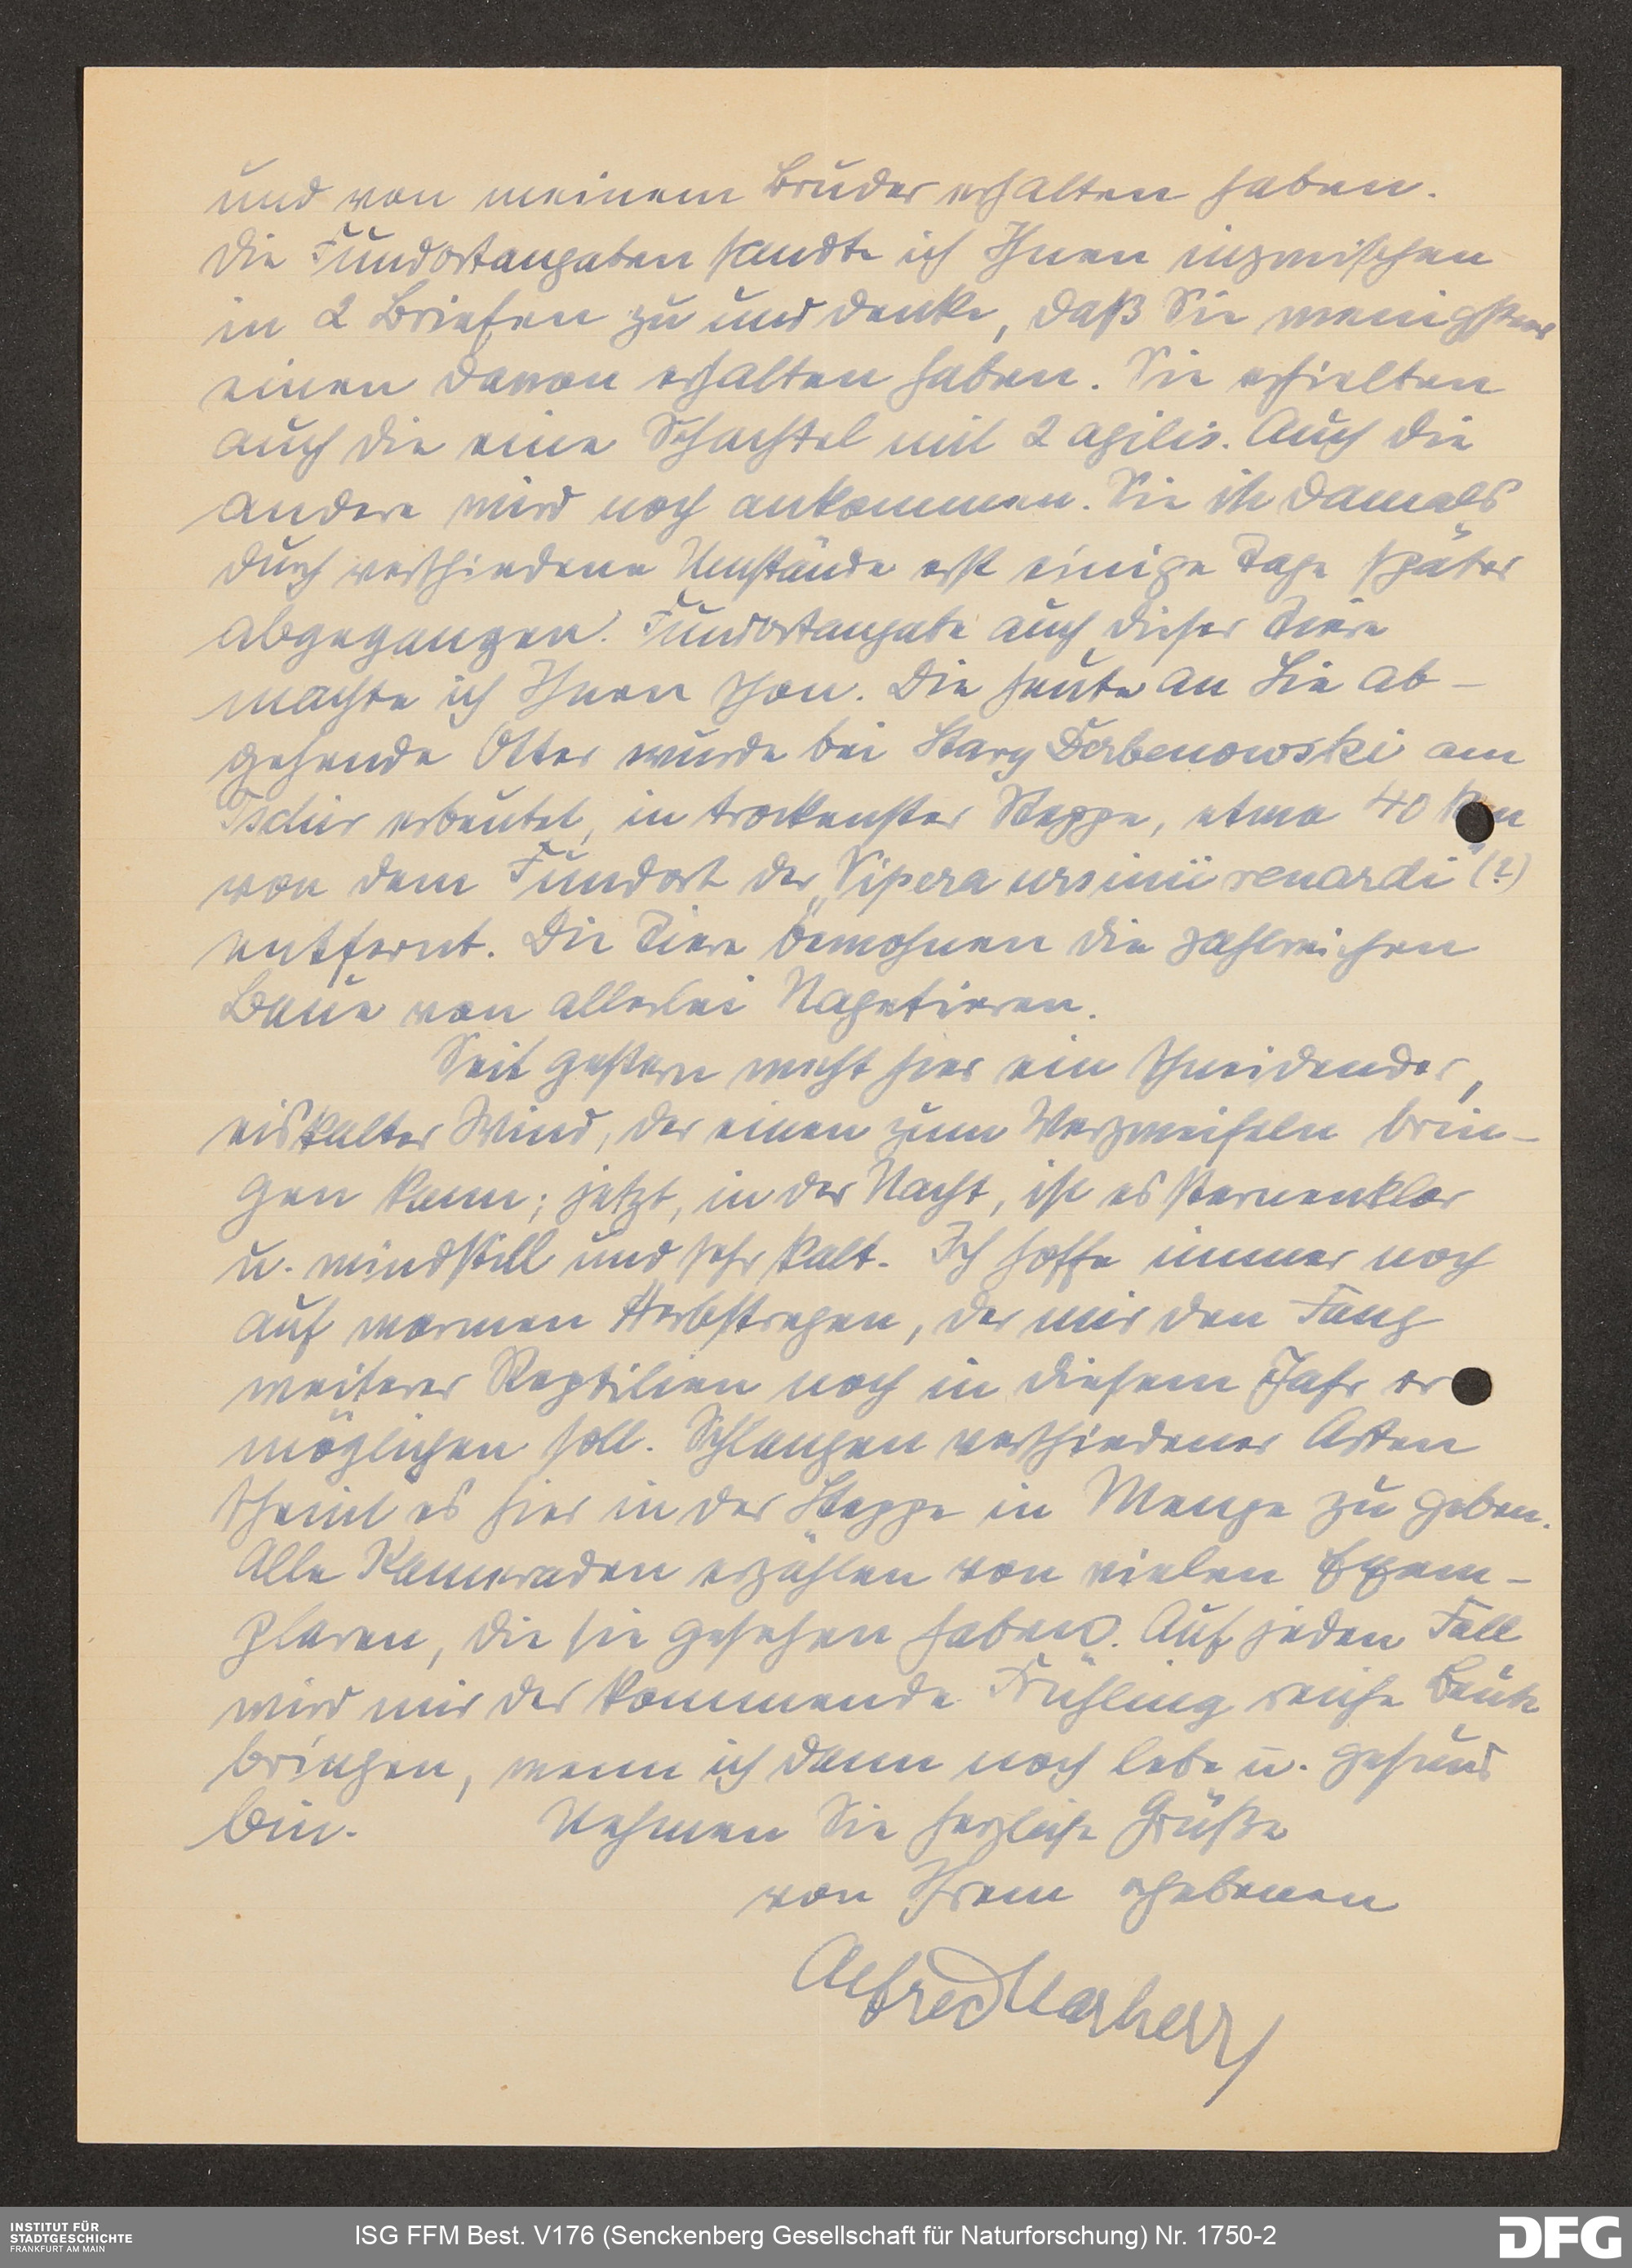 und von meinem Bruder erhalten haben.
Die Fundortangaben sandte ich Ihnen inzwischen
in 2 Briefen zu und denke, daß Sie wenigstens
einen davon erhalten haben. Sie erhielten
auch die eine Schachtel mit 2 agilis. Auch die
andere wird noch ankommen. Sie ist damals
durch verschiedene Umstände erst einige Tage später
abgegangen. Fundortangabe auch dieser Tiere
machte ich Ihnen schon. Die heute an Sie ab-
gehende Otter wurde bei Stary Derbenowski am
Tschir erbeutet, in trockenster Steppe, etwa 40 km
von dem Fundort der „Vipera ursinii renardi“ (?)
entfernt. Die Tiere bewohnen die zahlreichen
Baue von allerlei Nagetieren.
Seit gestern weht hier ein schneidender,
eiskalter Wind, der einen zum Verzweifeln brin-
gen kann; jetzt, in der Nacht, ist es sternenklar
u. windstill und sehr kalt. Ich hoffe immer noch
auf warmen Herbstregen, der mir den Fang
weiterer Reptilien noch in diesem Jahr er
möglichen soll. Schlangen verschiedener Arten
scheint es hier in der Steppe in Menge zu geben.
Alle Kameraden erzählen von vielen Exem-
plaren, die sie gesehen haben. Auf jeden Fall
wird mir der kommende Frühling reiche Beute
bringen, wenn ich dann noch lebe u. gesund
bin. Nehmen Sie herzliche Grüße
von Ihrem ergebenen
Alfred
INSTITUT FÜR
STADTGESCHICHTE
FRANKFURT AM MAIN
ISG FFM Best. V176 (Senckenberg Gesellschaft für Naturforschung) Nr. 1750-2
DFG